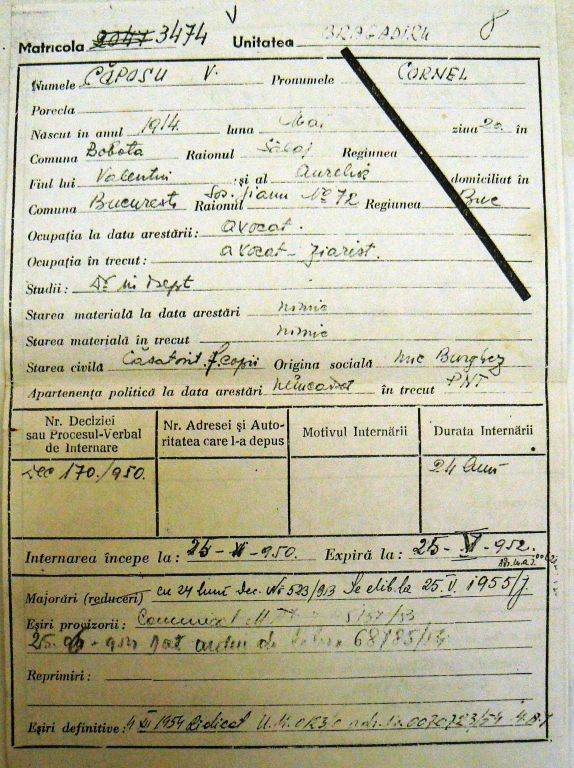 Matricola 2047 3474 V Unitatea BRAGADIRU 8
Numele CĂPOSU V. Pronumele CORNEL
Porecla
Născut în anul 1914. luna Mai ziua 20. în
Comuna Bobota Raionul Sălaj Regiunea
Fiul lui Valentin și al Aurelia domiciliat în
Comuna București Raionul No 72 Regiunea Buc
Ocupația la data arestării: avocat.
Ocupația în trecut: avocat - ziarist.
Studii: Dr in Drept
Starea materială la data arestări nimic
Starea materială în trecut nimic
Starea civilă Căsătorit copii Origina socială mic Burghez
Apartenența politică la data arestări neîncadrat în trecut PNT
Nr. Deciziei
sau Procesul-Verbal
de Internare
Nr. Adresei și Auto-
ritatea care l-a depus
Motivul Internării
Durata Internării
Dec 170/950.
24 luni
Internarea începe la: 25 - VI - 950. Expiră la: 25 - VI - 952.
Majorări (reduceri) cu 24 luni Dec. Nr 523/913 Se elib. la 25. V. 1955/
Eșiri provizorii:
25. - 954 ordin de 68785/54
Reprimiri:
Eșiri definitive: 4 XII 1954 Ridicat U.M. 0123/